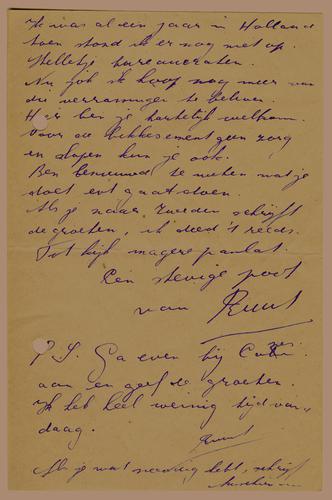 Ik was al een jaar in Holland
toen stond ik er nog niet op.
Stelletje bureaucraten.
Nu Job ik hoop nog meer van
die verrassingen te beleven.
Hier ben je hartelijk welkom.
Voor de bikkesement geen zorg
en slapen kun je ook.
Ben benieuwd te weten wat je
doet evt gaat doen.
Als je naar Zweden schrijft
de groeten, ik deed 't reeds.
Tot kijk magere panlat.
Een stevige poot
van Ruut
P.S. Ga even bij
aan en geef de groeten.
Ik heb heel weinig tijd van-
daag.
Ruut
Als je wat noodig hebt, schrijf